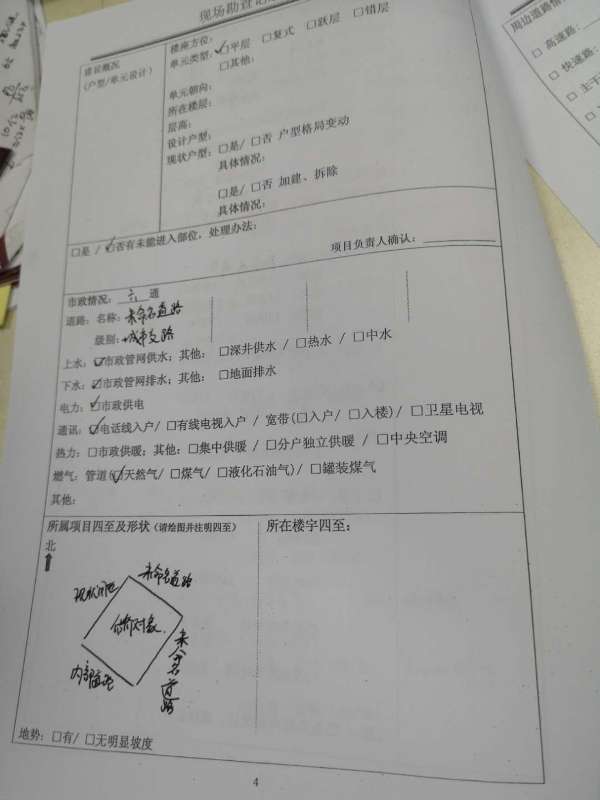 现场勘查记
(户型/单元设计)
楼座方位：
单元类型：☑平层 □复式 □跃层 □错层
□其他：
单元朝向：
所在楼层：
层高：
设计户型：
现状户型：□是/ □否 户型格局变动
具体情况：
□是/ □否 加建、拆除
具体情况：
□是 / ☑否有未能进入部位，处理办法：
项目负责人确认：
市政情况：六 通
道路：名称：未命名道路
级别：城市支路
上水：☑市政管网供水；其他： □深井供水 / □热水 / □中水
下水：☑市政管网排水；其他： □地面排水
电力：☑市政供电
通讯：☑电话线入户/ □有线电视入户 / 宽带(□入户/ □入楼)/ □卫星电视
热力：□市政供暖；其他：□集中供暖 / □分户独立供暖 / □中央空调
燃气：管道(☑天然气/ □煤气/ □液化石油气)/ □罐装煤气
其他：
所属项目四至及形状（请绘图并注明四至）
所在楼宇四至：
北
未命名道路
估价对象
未命名道路
内部
地势：□有/ □无明显坡度
4
周边道路情
□ 高速路：
□ 快速路：
□ 主干